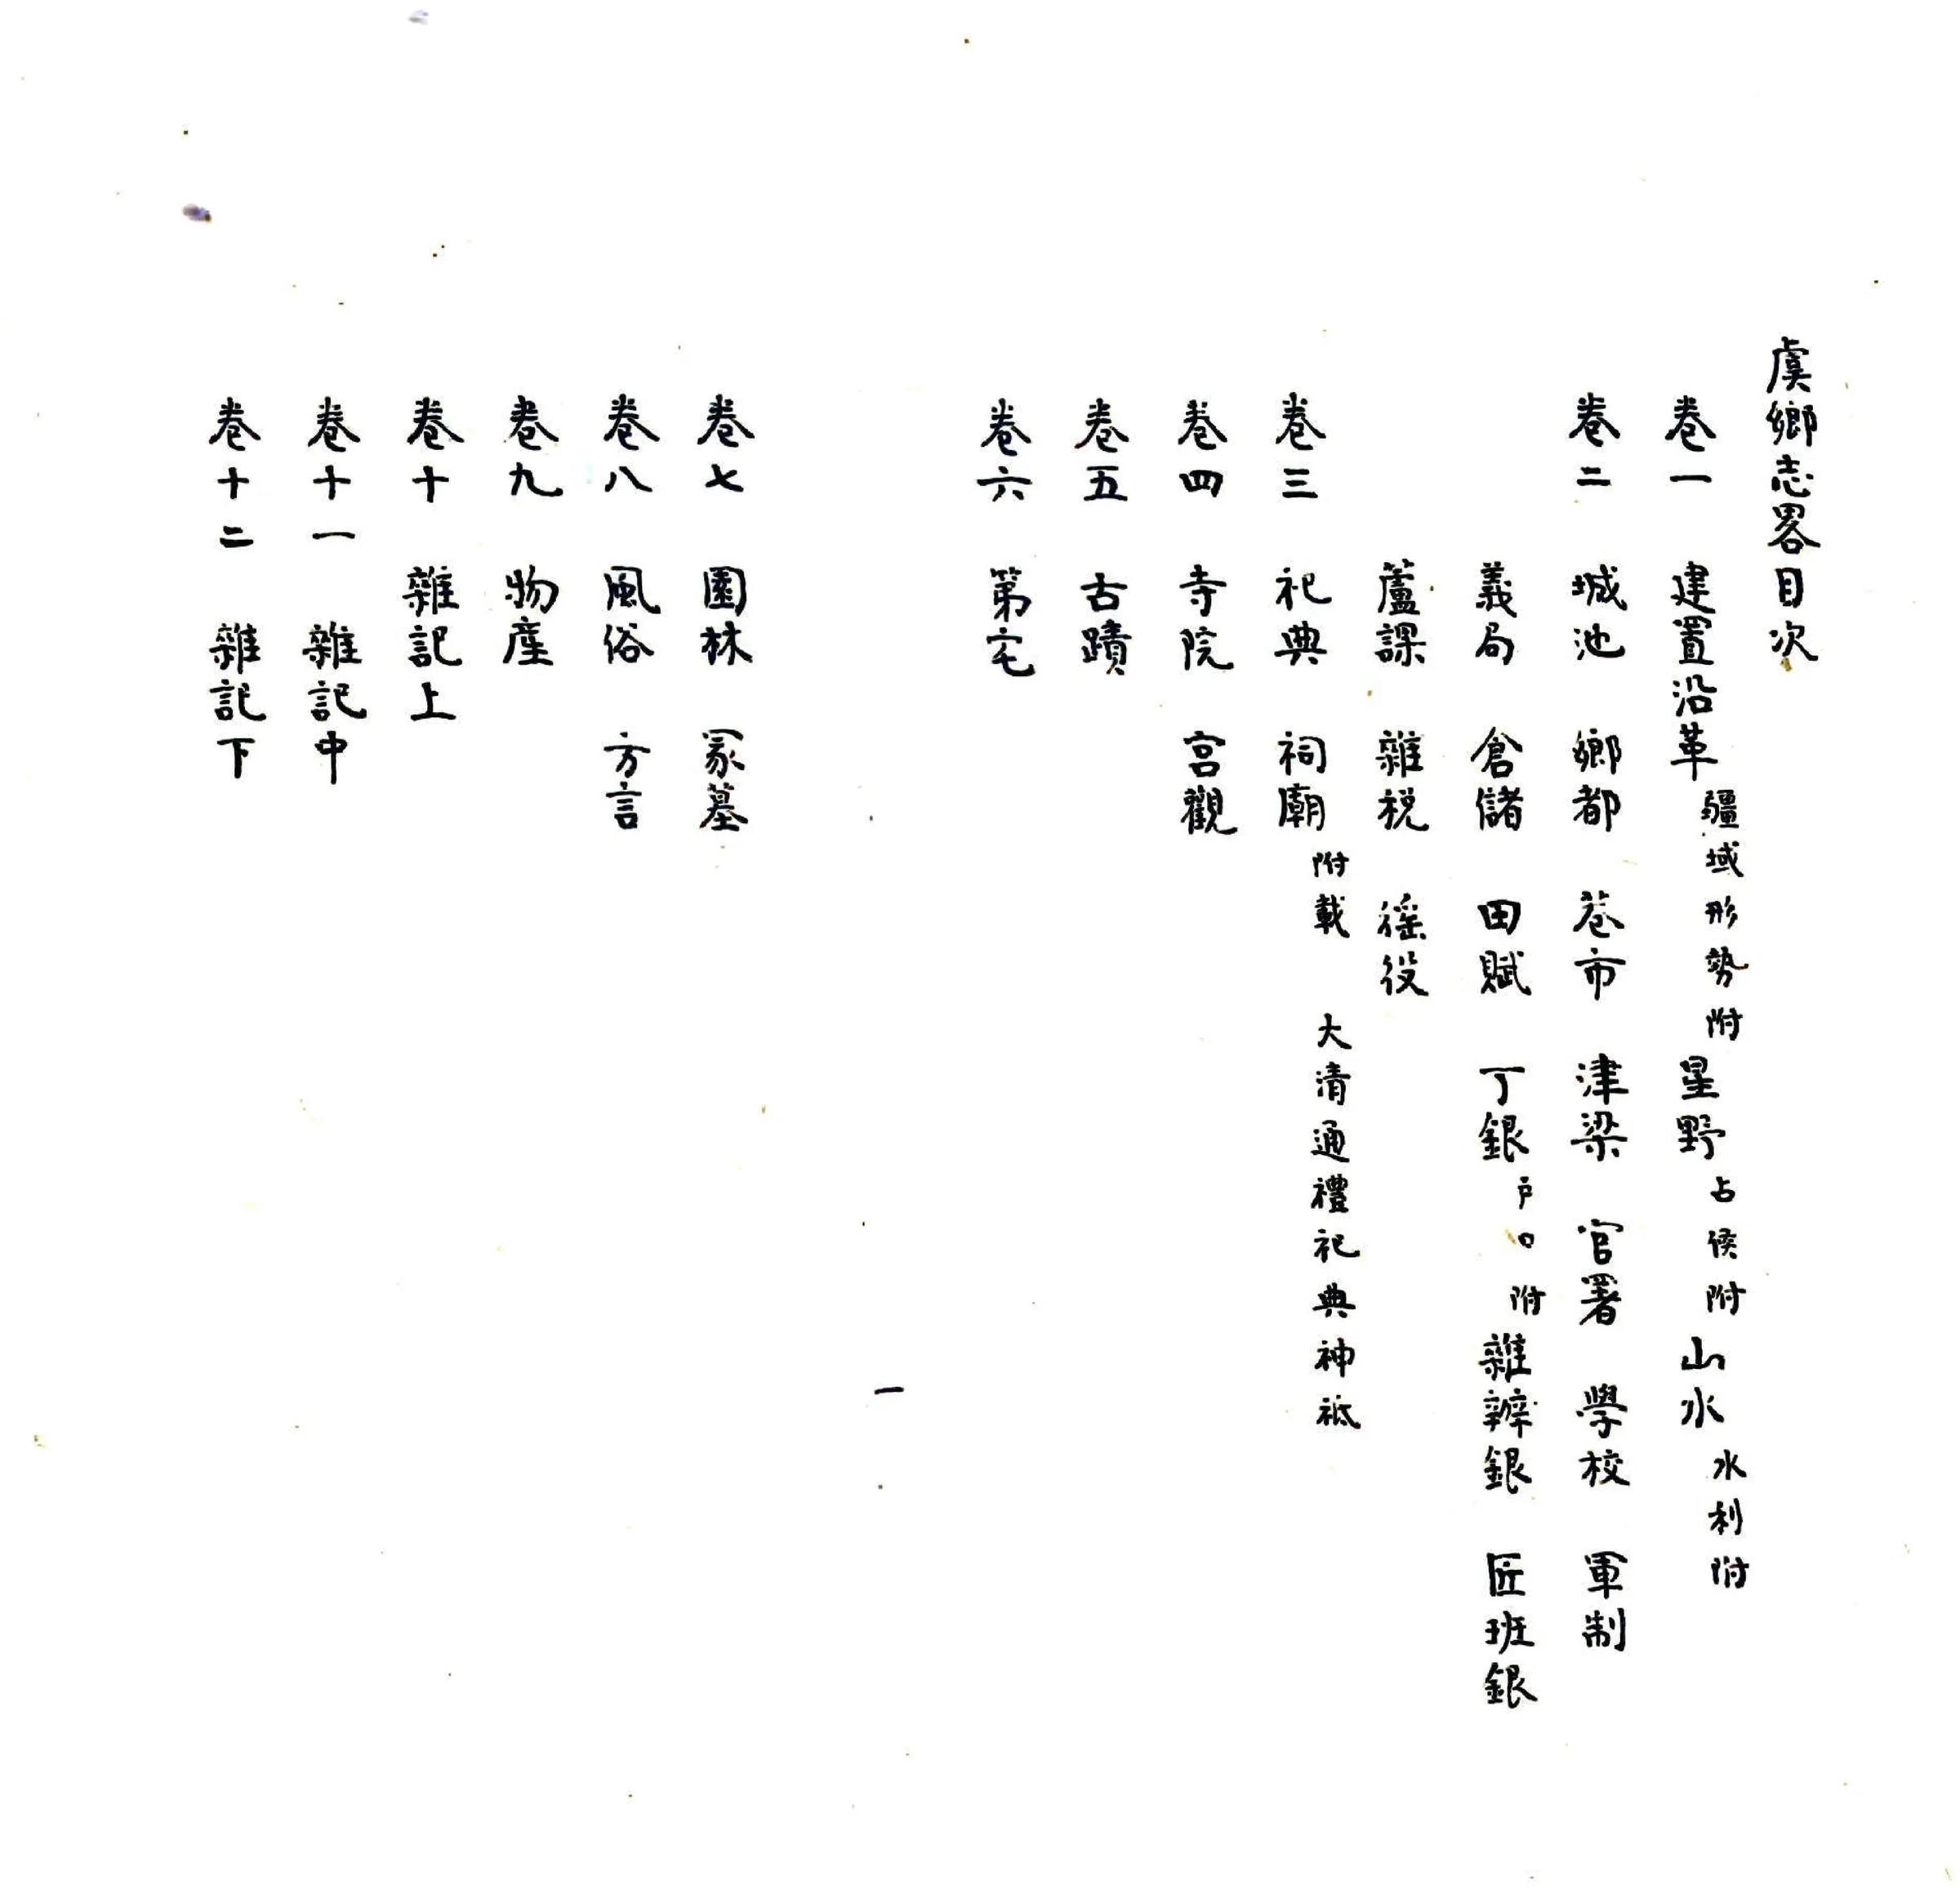 虞鄉志畧目次
卷一 建置沿革 疆域形勢附 星野 占候附 山水 水利附
卷二 城池 鄉都 巷市 津梁 官署 學校 軍制
義局 倉儲 田賦 丁銀 戶口附 雜辦銀 匠班銀
蘆課 雜稅 徭役
卷三 祀典 祠廟 附載 大清通禮祀典神祗
卷四 寺院 宮觀
卷五 古蹟
卷六 第宅
一
卷七 園林 冢墓
卷八 風俗 方言
卷九 物產
卷十 雜記上
卷十一 雜記中
卷十二 雜記下